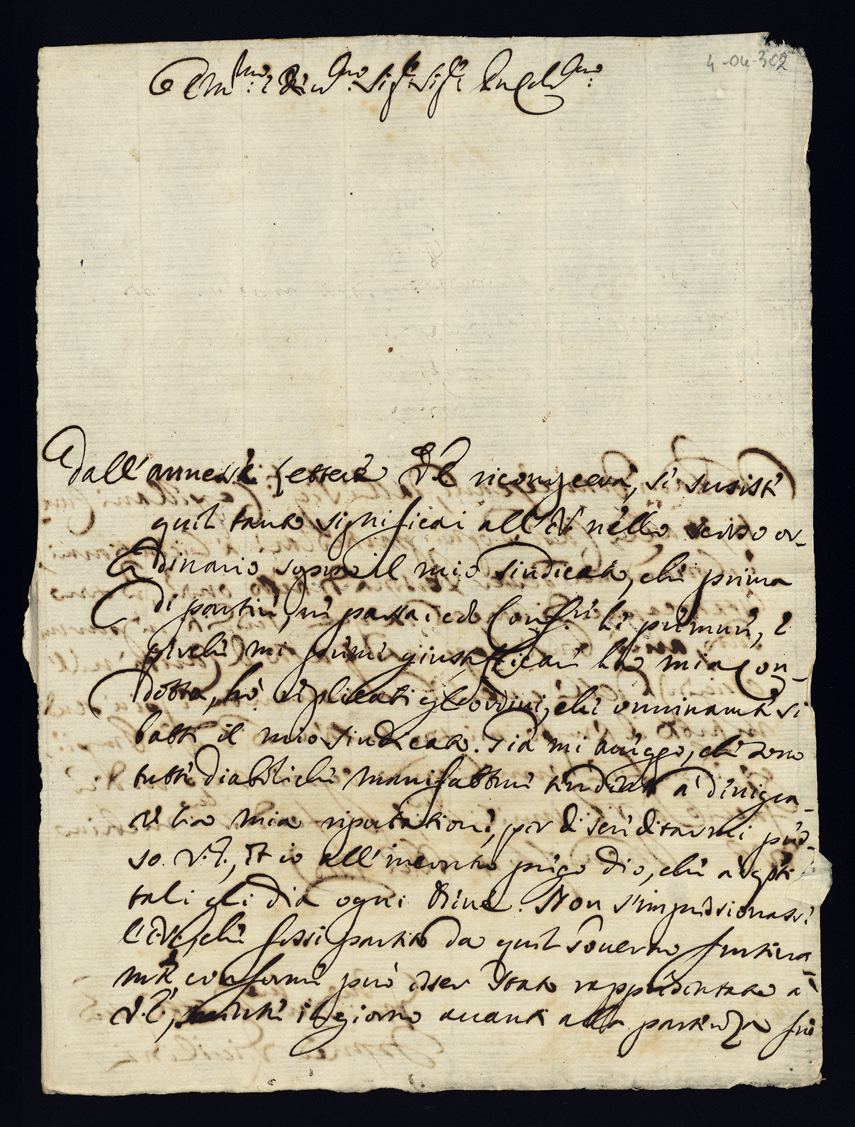 4-04-302
Em.mo e R.mo Sig.r Sig.r
dall'annessa lettera V.E. riconoscerà, se sussiste
quel tanto significai all'E.V. nello scorso or-
dinario sopra il mio sindicato, che prima
di partire, ne passai col le premure, e
perche mi preme giustificare la mia con-
dotta, hò replicati gl'ordini, che onninam.te si
batti il mio sindicato. Già mi aveggo, che sono
tutte diaboliche manifatture tendenti a denigra-
re la mia riputatione, per discreditarmi pres-
so V.E., et io all'incontro prego Dio, che a questi
tali gli dia ogni bene. Non s'impressionasse
l'E.V. che fossi partito da quel Governo furtiva
m.te, conforme può esser stato rappresentato a
V.E., mentre il giorno avanti alla partenza fui